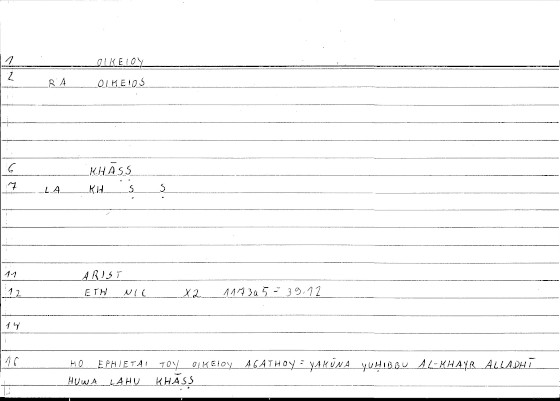 1 OIKEIOY
2 RA OIKEIOS
6 KHĀṢṢ
7 LA KH Ṣ Ṣ
11 ARIST
12 ETH NIC X2 1173a5 = 39.12
14
15 HO EPHIETAI TOY OIKEIOY AGATHOY = YAKŪNA YUḤIBBU AL-KHAYR ALLADHĪ
HUWA LAHU KHĀṢṢ